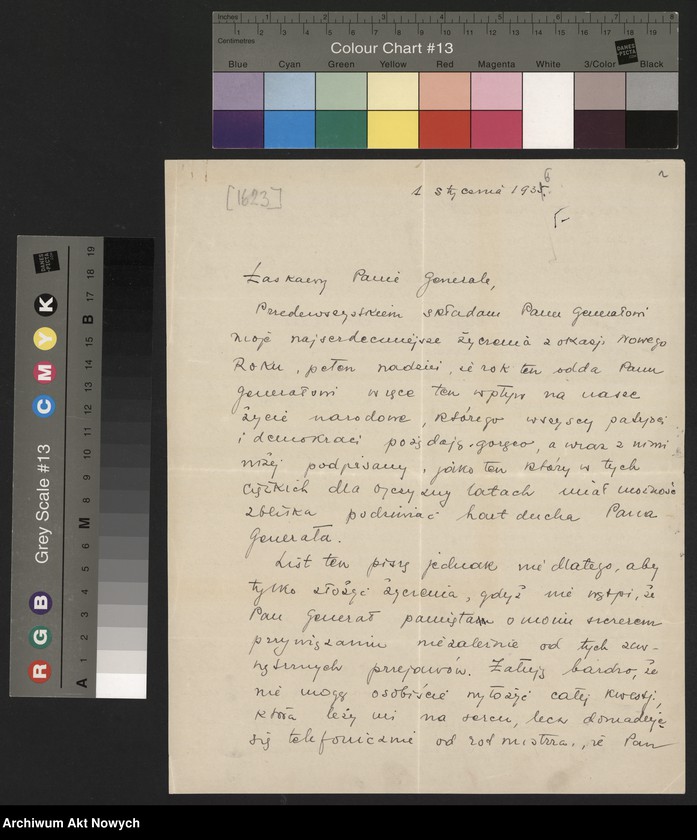 Inches 1 2 3 4 5 6 7 8
1 2 3 4 5 6 7 8 9 10 11 12 13 14 15 16 17 18 19
Centimetres
Colour Chart #13
DANES PICTA
Blue Cyan Green Yellow Red Magenta White 3/Color Black
[1623]
1 stycznia 1936.
2
Łaskawy Panie Generale,
Przedewszystkiem składam Panu Generałowi
moje najserdeczniejsze życzenia z okazji Nowego
Roku, pełen nadziei, że rok ten odda Panu
Generałowi w ręce ten wpływ na nasze
życie narodowe, którego wszyscy patrjoci
i demokraci pożądają gorąco, a wraz z nimi
niżej podpisany, jako ten który w tych
ciężkich dla ojczyzny latach miał możność
zbliska podziwiać hart ducha Pana
Generała.
List ten piszę jednak nie dlatego, aby
tylko złożyć życzenia, gdyż nie wątpię, że
Pan Generał pamięta o moim szczerem
przywiązaniu niezależnie od tych zew-
nętrznych przejawów. Żałuję bardzo, że
nie mogę osobiście wyłożyć całej kwestji,
która leży mi na sercu, lecz
się telefonicznie od rotmistrza, że Pan
Grey Scale #13
R G B C M Y K
A 1 2 3 4 5 6 M 8 9 10 11 12 13 14 15 B 17 18 19
DANES PICTA
Archiwum Akt Nowych